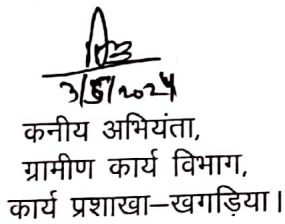 3/5/2024
कनीय अभियंता,
ग्रामीण कार्य विभाग,
कार्य प्रशाखा–खगड़िया।